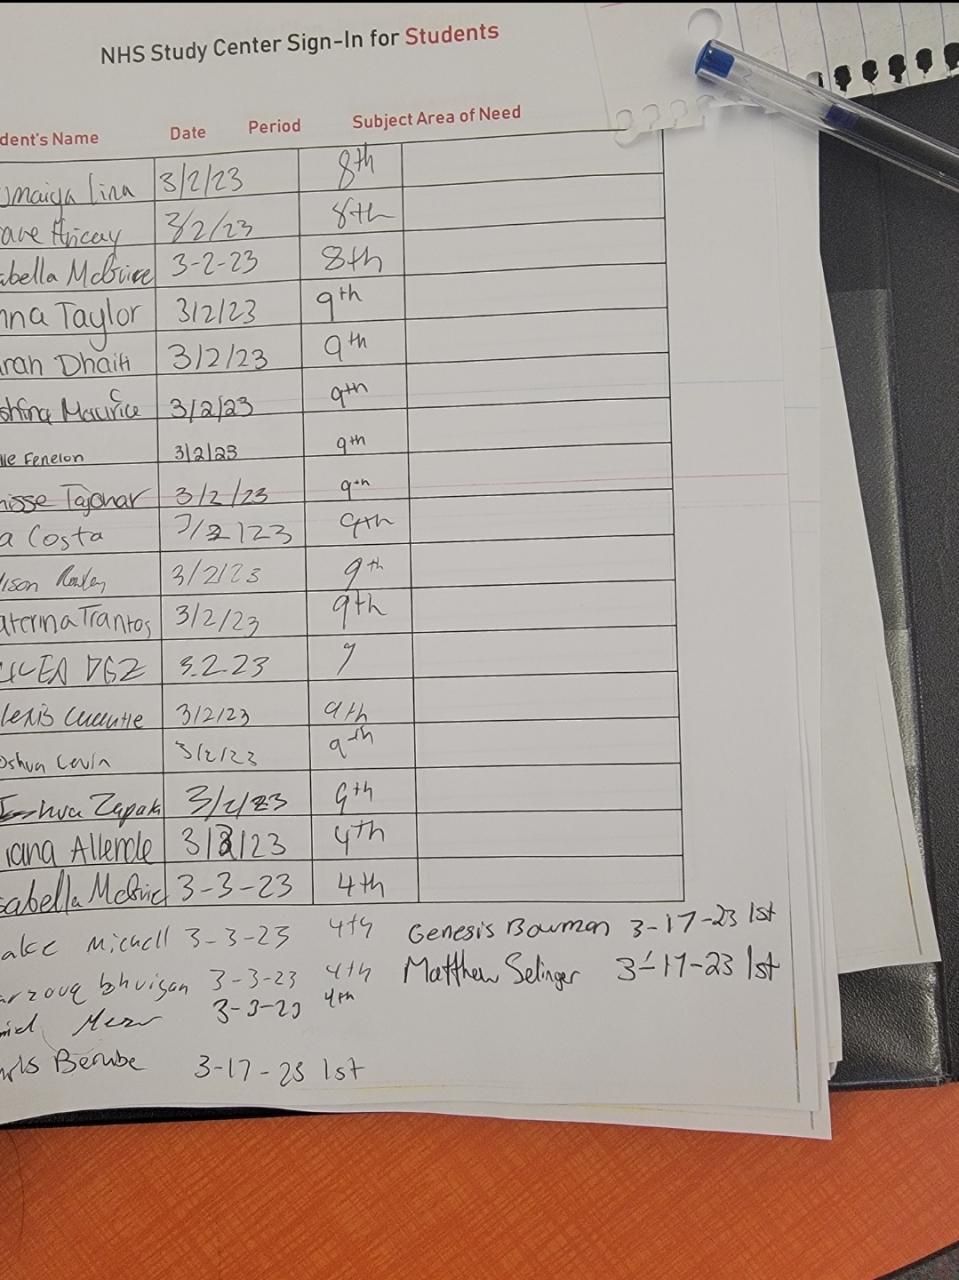 NHS Study Center Sign-In for Students
dent's Name Date Period Subject Area of Need
maiya Lina 3/2/23 8th
ave 3/2/23 8th
abella McGuire 3-2-23 8th
nna Taylor 3/2/23 9th
rah Dhaiti 3/2/23 9th
Maurice 3/2/23 9th
lle Fenelon 3/2/23 9th
nisse 3/2/23 9th
a Costa 3/2/23 9th
ison 3/2/23 9th
aterina Trantos 3/2/23 9th
3.2.23 9
lexis 3/2/23 9th
oshua Levin 3/2/23 9th
3/2/23 9th
iana Allende 3/3/23 4th
sabella McGuire 3-3-23 4th
ake Michell 3-3-23 4th
arzouq bhuiyan 3-3-23 4th
niel 3-3-23 4th
Berube 3-17-23 1st
Genesis Bowman 3-17-23 1st
Matthew Selinger 3-17-23 1st